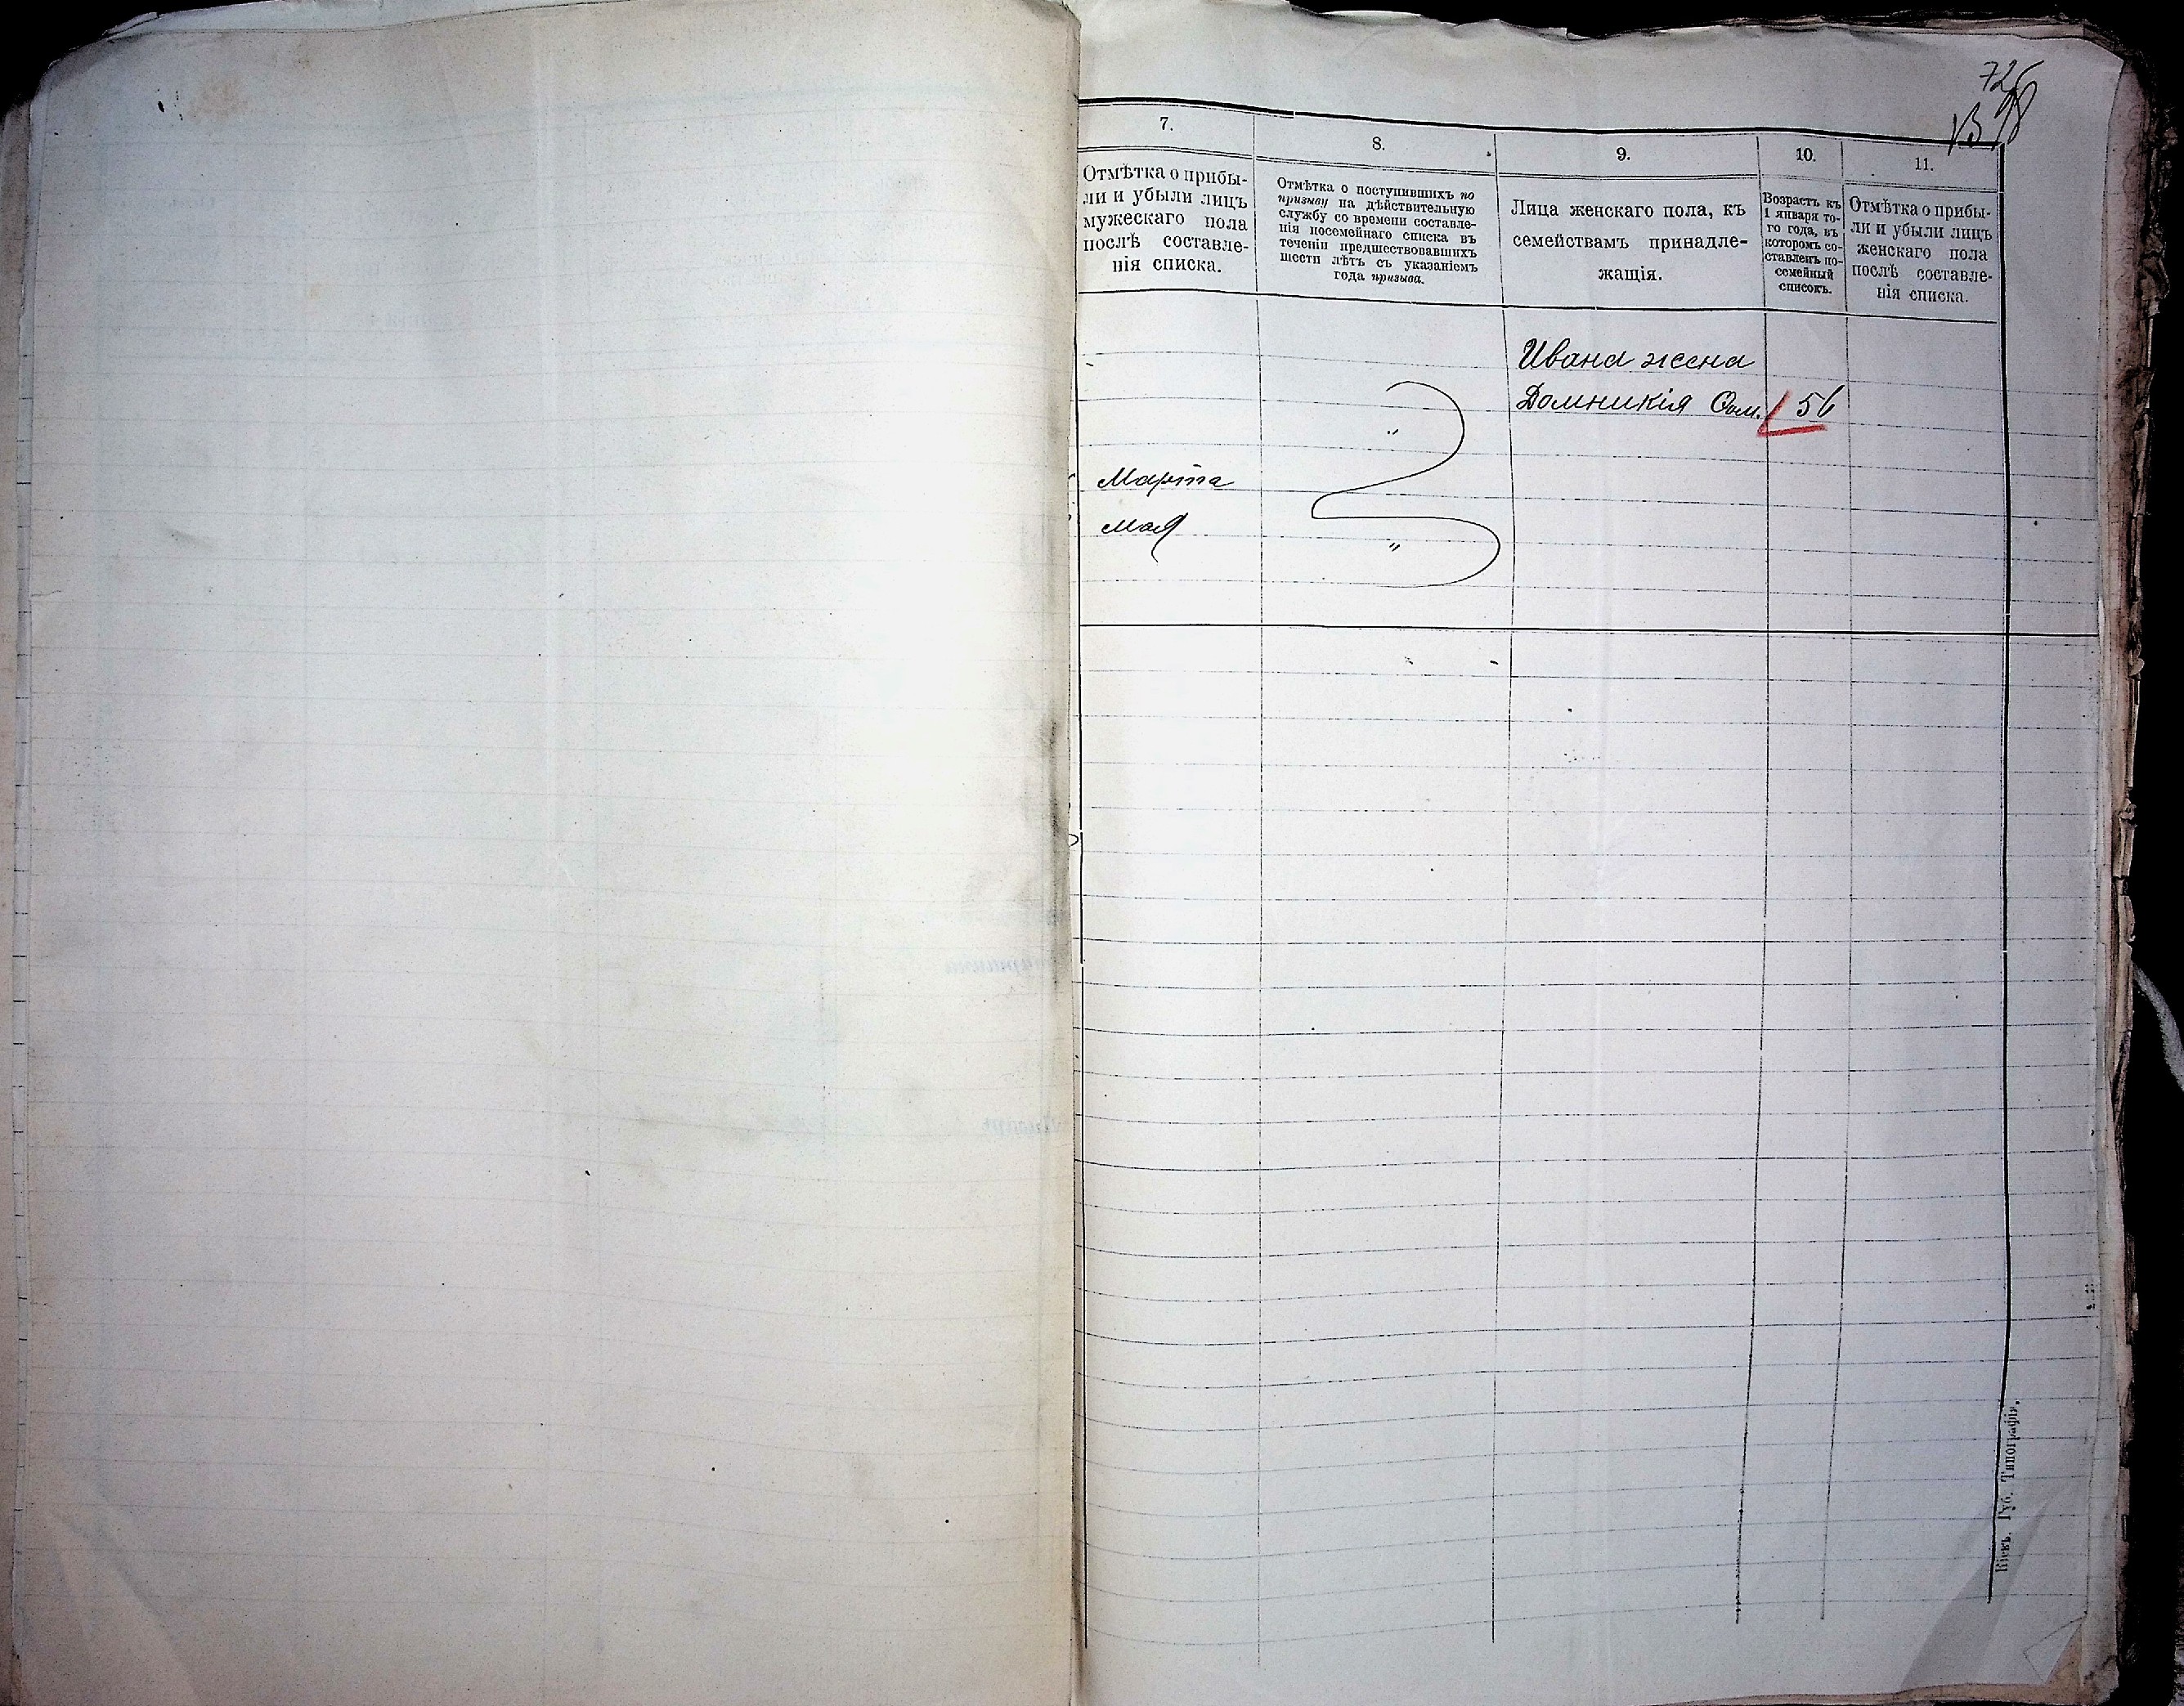 726
7.
8.
9.
10.
11.
Отмѣтка о прибы-
ли и убыли лицъ
мужескаго пола
послѣ составле-
нія списка.
Отмѣтка о поступившихъ по
призыву на дѣйствительную
службу со времени составле-
нія посемейнаго списка въ
теченіи предшествовавшихъ
шести лѣтъ съ указаніемъ
года призыва.
Лица женскаго пола, къ
семействамъ принадле-
жащія.
Возрастъ къ
1 января то-
го года, въ
которомъ со-
ставленъ по-
семейный
списокъ.
Отмѣтка о прибы-
ли и убыли лицъ
женскаго пола
послѣ составле-
нія списка.
Ивана жена
Домникія 56
"
Марта
мая
"
Кіевъ. Губ. Типографія.